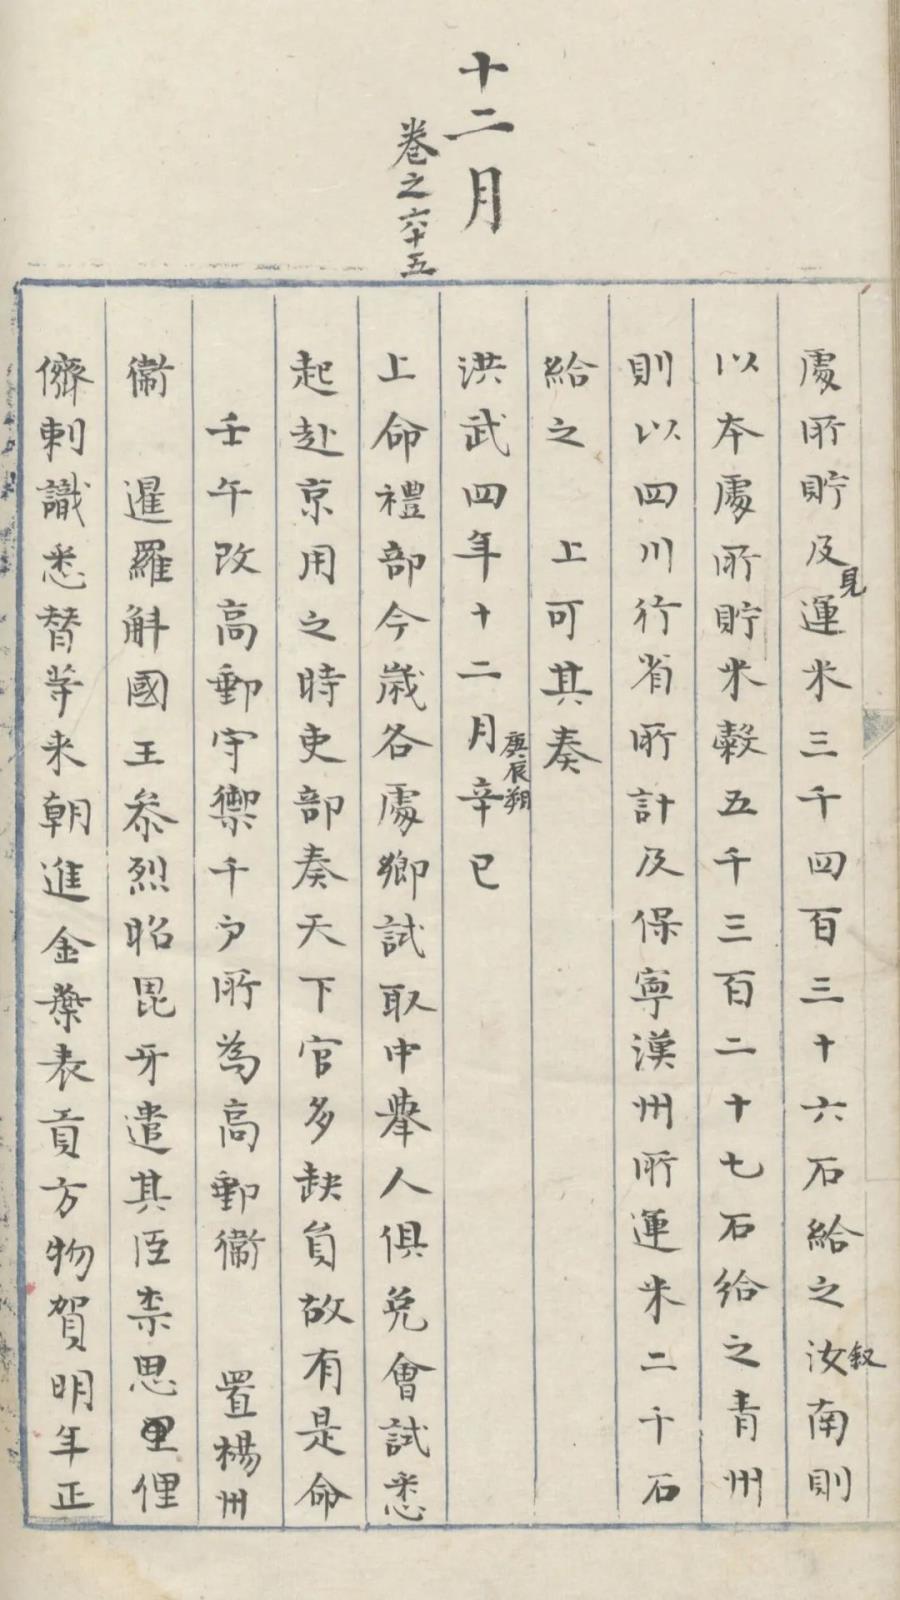 十二月
卷之六十五
處所貯及見運米三千四百三十六石給之汝叙南則
以本處所貯米穀五千三百二十七石給之青州
則以四川行省所計及保寧漢州所運米二千石
給之　上可其奏
洪武四年十二月庚辰朔辛巳
上命禮部今歲各處鄉試取中舉人俱免會試悉
起赴京用之時吏部奏天下官多缺員故有是命
壬午改高郵守禦千户所為高郵衞　置楊州
衞　暹羅斛國王叅烈昭毘牙遣其臣柰思里俚
儕剌識悉替等来朝進金葉表貢方物賀明年正